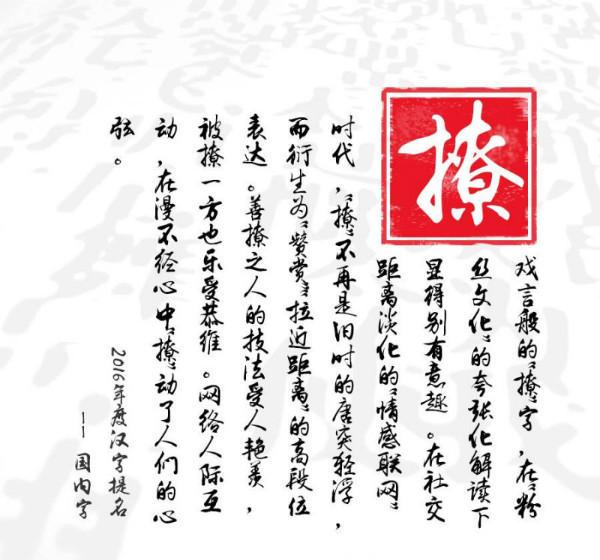 撩
戏言般的“撩”字，在“粉
丝文化”的夸张化解读下
显得别有意趣。在社交
距离淡化的“情感联网”
时代，“撩”不再是旧时的唐突轻浮，
而衍生为“赞赏”“拉近距离”的高段位
表达。善撩之人的技法受人艳羡，
被撩一方也乐受恭维。网络人际互
动，在漫不经心中“撩”动了人们的心
弦。
2016年度汉字提名
——国内字